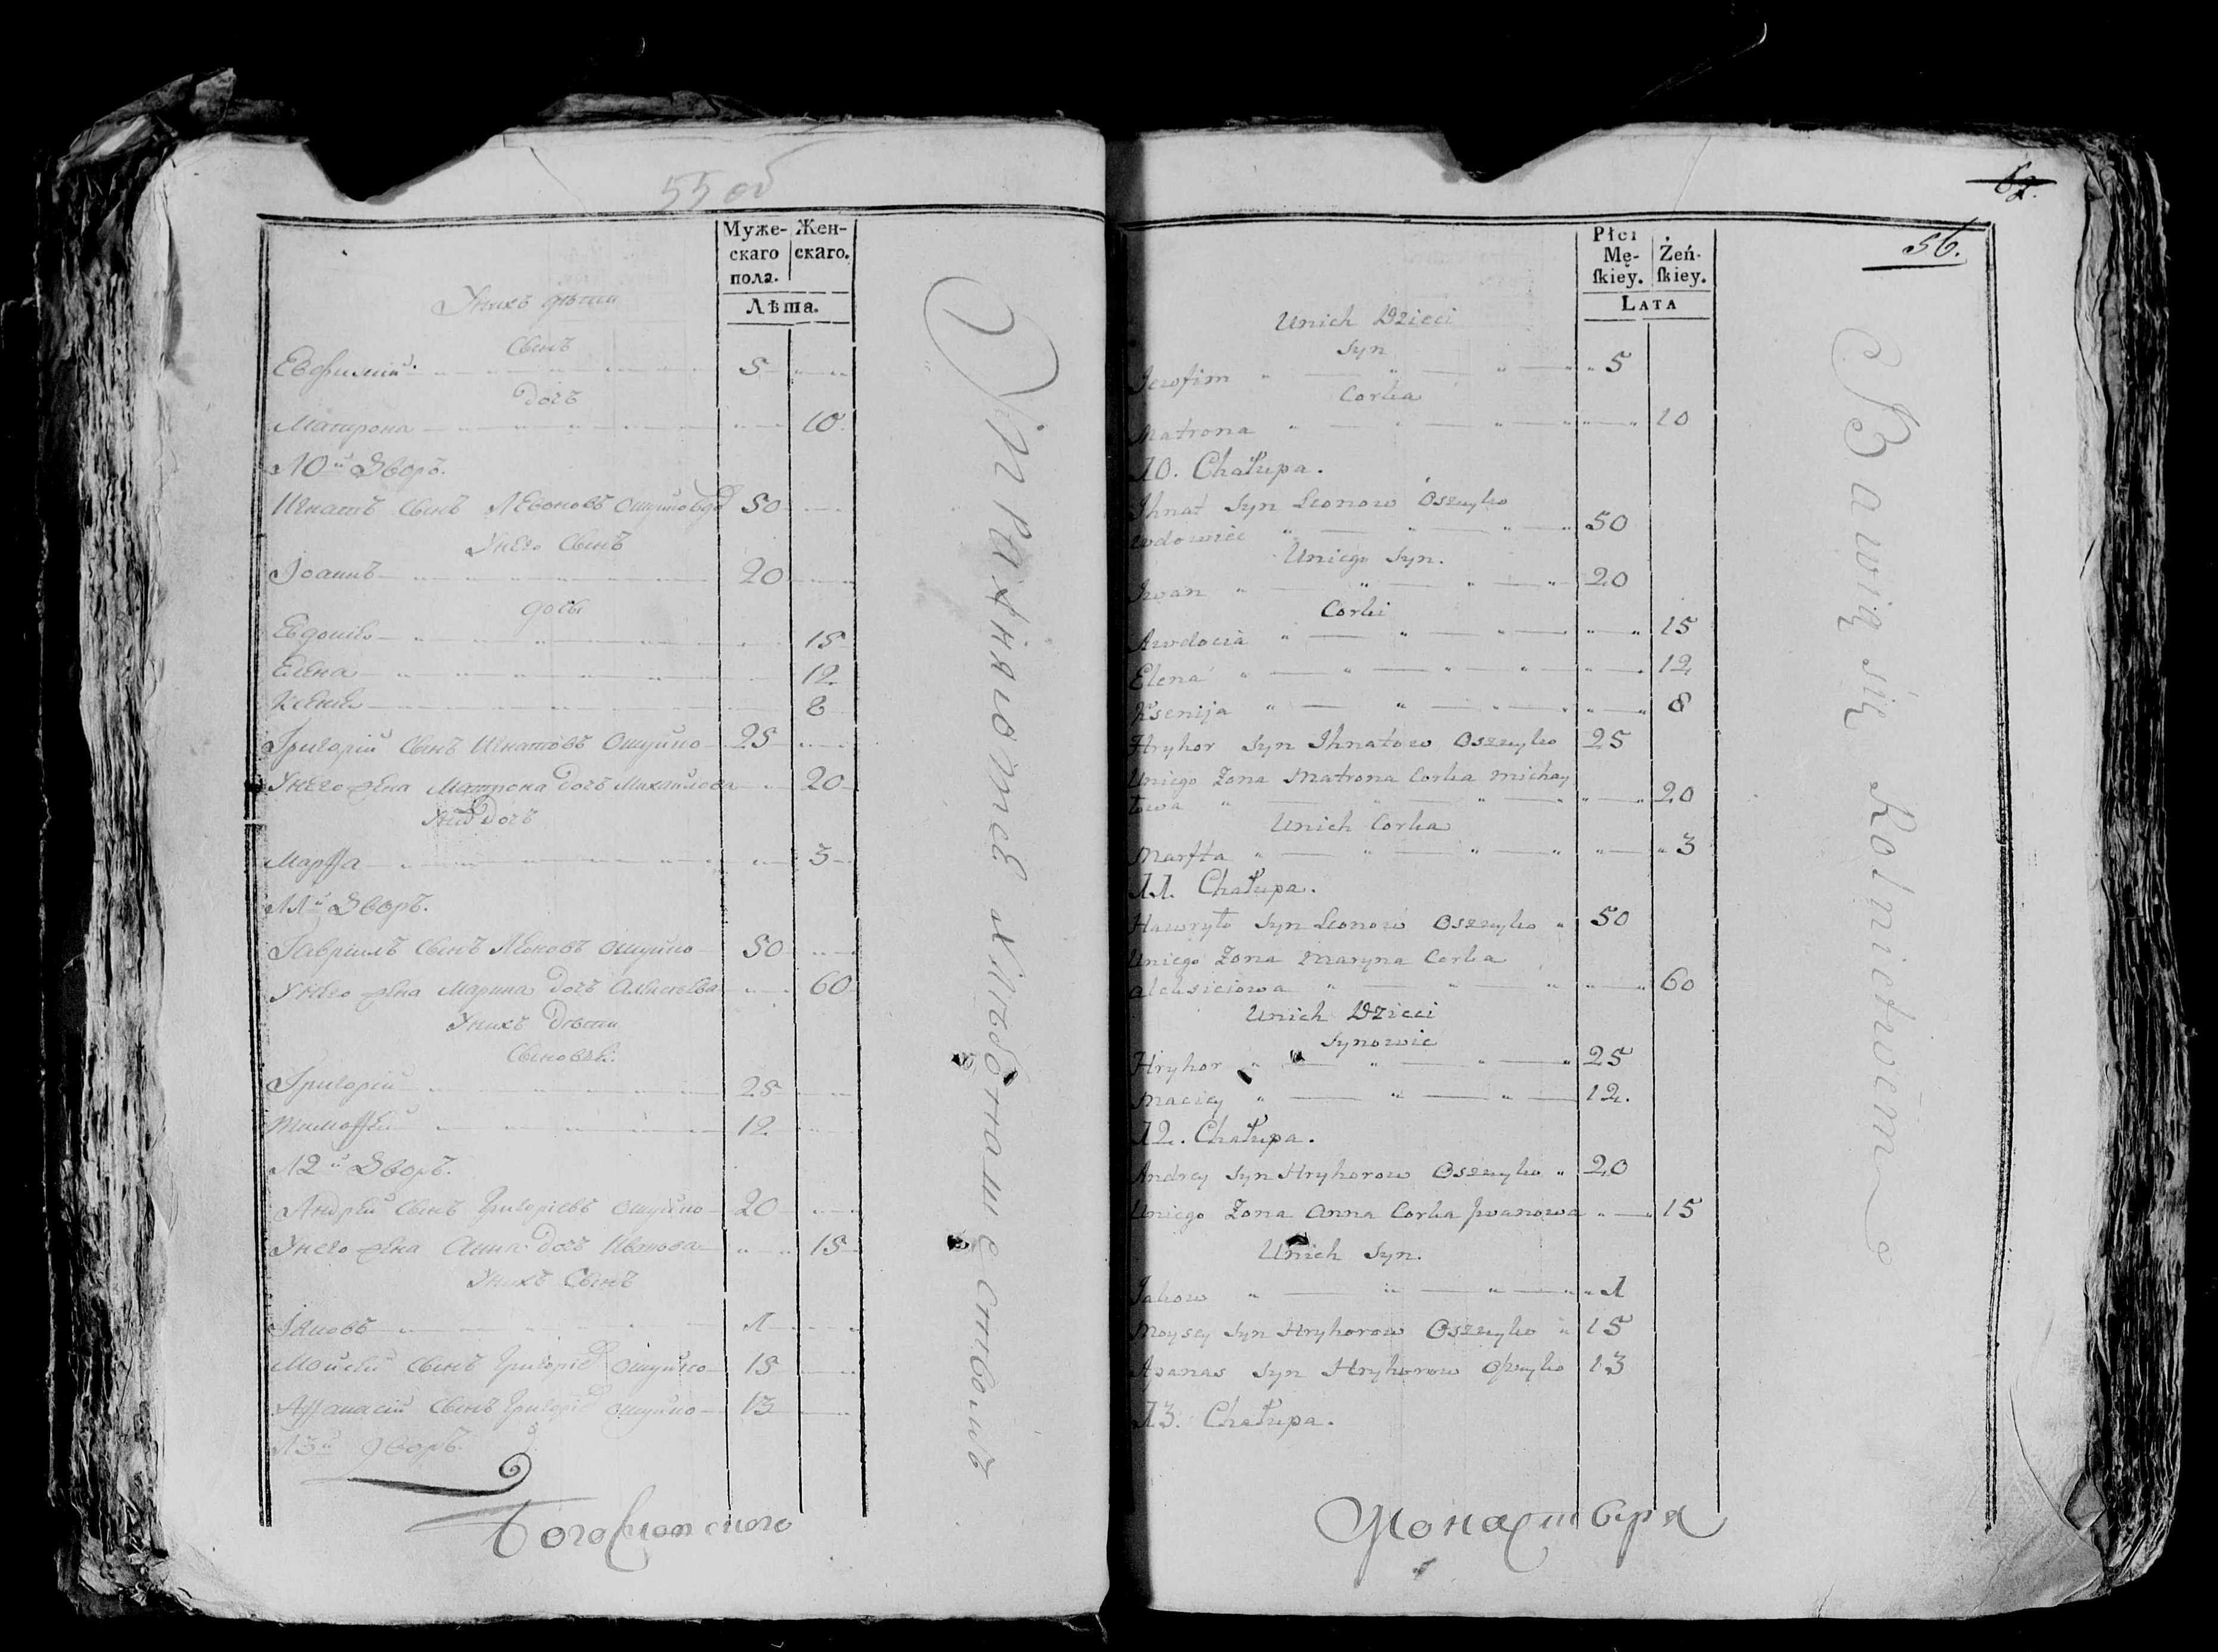 55 об
Муже-
скаго
пола.
Жен-
скаго.
Лѣта.
У нихъ дѣти
Сынъ
Евфимий 5
дочь
Матрона 10
10й Дворъ.
Игнатъ Сынъ Левоновъ Ошуйко вдо 50
У него Сынъ
Іоаннъ 20
дочь
Евдокія 15
Елена 12
Ксенія 8
Григорій Сынъ Игнатовъ Ошуйко 25
У него жена Матрона дочь Михайлова 20
У них дочь
Марѳа 3
11й Дворъ.
Гавріилъ Сынъ Леоновъ Ошуйко 50
У него жена Марина дочь Алексѣева 60
У нихъ Дѣти
Сыновья
Григорій 25
Тимоѳей 12
12й Дворъ.
Андрей Сынъ Григоріевъ Ошуйко 20
У него жена Анна дочь Иванова 15
У нихъ Сынъ
Іаковъ 1
Мойсей Сынъ Григоріе Ошуйко 15
Аѳанасій Сынъ Григоріе Ошуйко 13
13й дворъ.
Упражняются хлѣбопашествомъ
62.
56.
Płci
Mę-
ſkiey.
Żeń-
ſkiey.
LATA
Unich Dzieci
Syn
Jewfim 5
Corka
Matrona 10
10. Chałupa.
Ihnat Syn Leonow Oszuyko
wdowiec 50
Uniego Syn.
Iwan 20
Corki
Awdocia 15
Elena 12
Ksenija 8
Hryhor Syn Ihnatow Oszuyko 25
Uniego Zona Matrona Corka Michay
łowa 20
Unich Corka
Marfta 3
11. Chałupa.
Hawryło Syn Leonow Oszuyko 50
Uniego Zona Maryna Corka
aleksieiowa 60
Unich Dzieci
Synowie
Hryhor 25
Maciey 12.
12. Chałupa.
Andrey Syn Hryhorow Oszuyko 20
Uniego Zona Anna Corka Jwanowa 15
Unich Syn.
Jakow 1
Moysey Syn Hryhorow Oszuyko 15
Apanas Syn Hryhorow Oszuyko 13
13. Chałupa.
Bawią się Rolnictwem
Монастыря